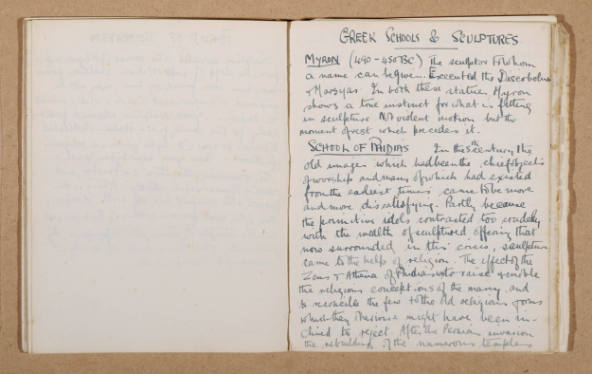 GREEK SCHOOLS & SCULPTURES
MYRON (480-450 BC) The sculptor to whom
a name can be given. Executed the Discobolus
& Marsyas. In both these statues Myron
shows a true instinct for what is fitting
in sculpture NOT violent motion but the
moment of rest which precedes it.
SCHOOL OF PHIDIAS In the 5th century the
old images which had been the chief objects
of worship and many of which had existed
from the earliest times came to be more
and more dissatisfying. Partly because
the primitive idols contrasted too crudely
with the wealth of sculptured offering that
now surrounded in this crisis, sculpture
came to the help of religion. The effect of the
Zeus & Athena of Phidias was to raise & enoble
the religious conceptions of the many, and
to reconcile the few to the old religious forms
which they otherwise might have been in-
clined to reject. After the Persian invasion
the rebuilding of the numerous temples